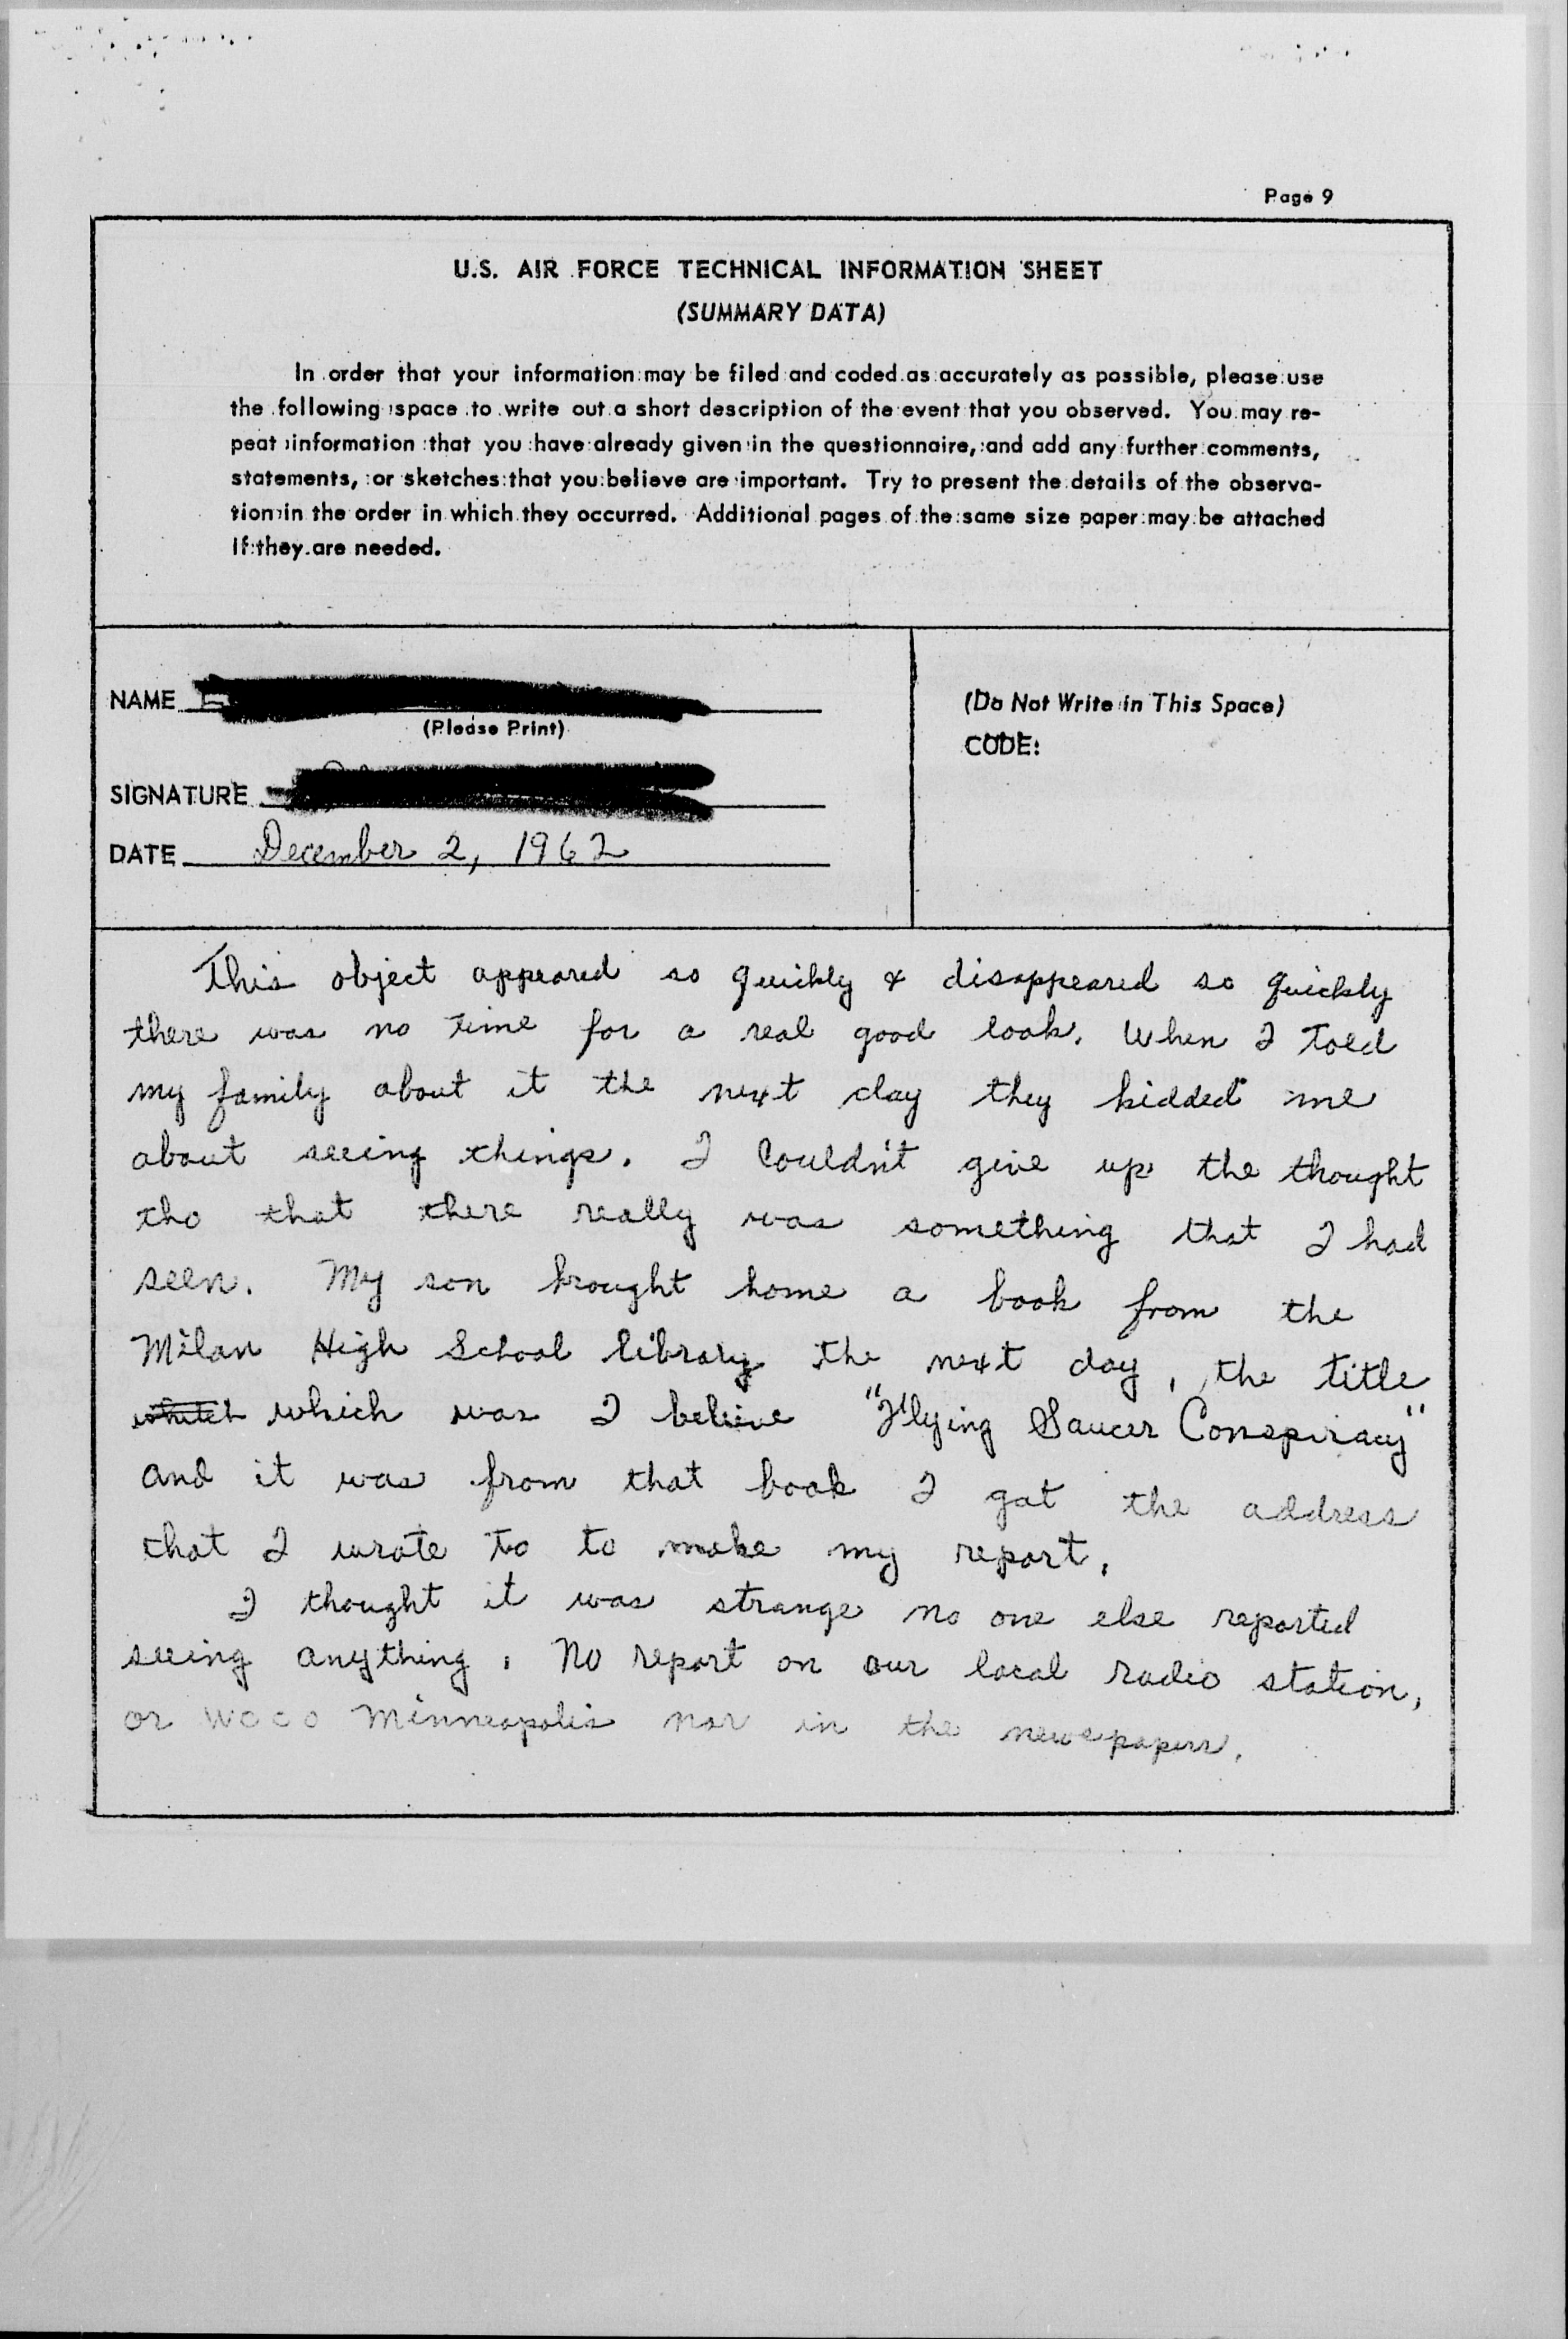 Page 9
U.S. AIR FORCE TECHNICAL INFORMATION SHEET
(SUMMARY DATA)
In order that your information may be filed and coded as accurately as possible, please use
the following space to write out a short description of the event that you observed. You may re-
peat information that you have already given in the questionnaire, and add any further comments,
statements, or sketches that you believe are important. Try to present the details of the observa-
tion in the order in which they occurred. Additional pages of the same size paper may be attached
if they are needed.
NAME
(Please Print)
SIGNATURE
DATE December 2, 1962
(Do Not Write in This Space)
CODE:
This object appeared so quickly & disappeared so quickly
there was no time for a real good look. When I told
my family about it the next day they kidded me
about seeing things. I couldn't give up the thought
tho that there really was something that I had
seen. My son brought home a book from the
Milan High School library the next day, the title
which was I believe "Flying Saucer Conspiracy"
and it was from that book I got the address
that I wrote to to make my report.
I thought it was strange no one else reported
seeing anything. No report on our local radio station,
or WCCO Minneapolis nor in the newspapers.